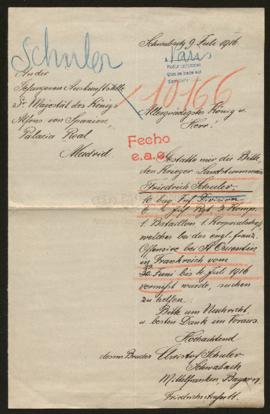 Schuler
Schwabach, 9 Juli 1916
Paris
An der
Gefangenen Auskunftstelle
Sr Majestät des König
Alfons von Spanien
Palacio Real
Madrid
10166
Allergnädigster König u.
Herr!
Fecho
e.a.e.
Gestatte mir die Bitte,
den Krieger Landsturmmann
Friedrich Schuler
6 bay Inf Division
1 Bataillon
welcher bei der engl. franz
Offensive bei St Quentin
in Frankreich vom
30 Juni bis 4 Juli 1916
vermißt wurde, suchen
zu helfen.
Bitte um Nachricht
u. besten Dank im Voraus.
Hochachtend
dessen Bruder Christof Schuler
Schwabach
Mittelfranken, Bayern